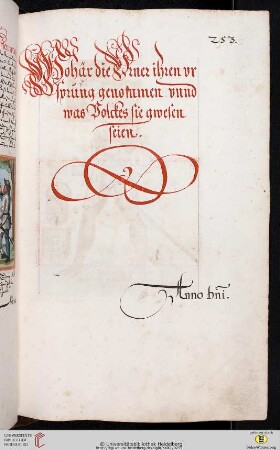 253.
Wohär die Urner ihren vr
sprung genommen vnnd
was Volckes sie gwesen
seien.
Anno dnī.
UNIVERSITÄTS-
BIBLIOTHEK
HEIDELBERG
© Universitätsbibliothek Heidelberg